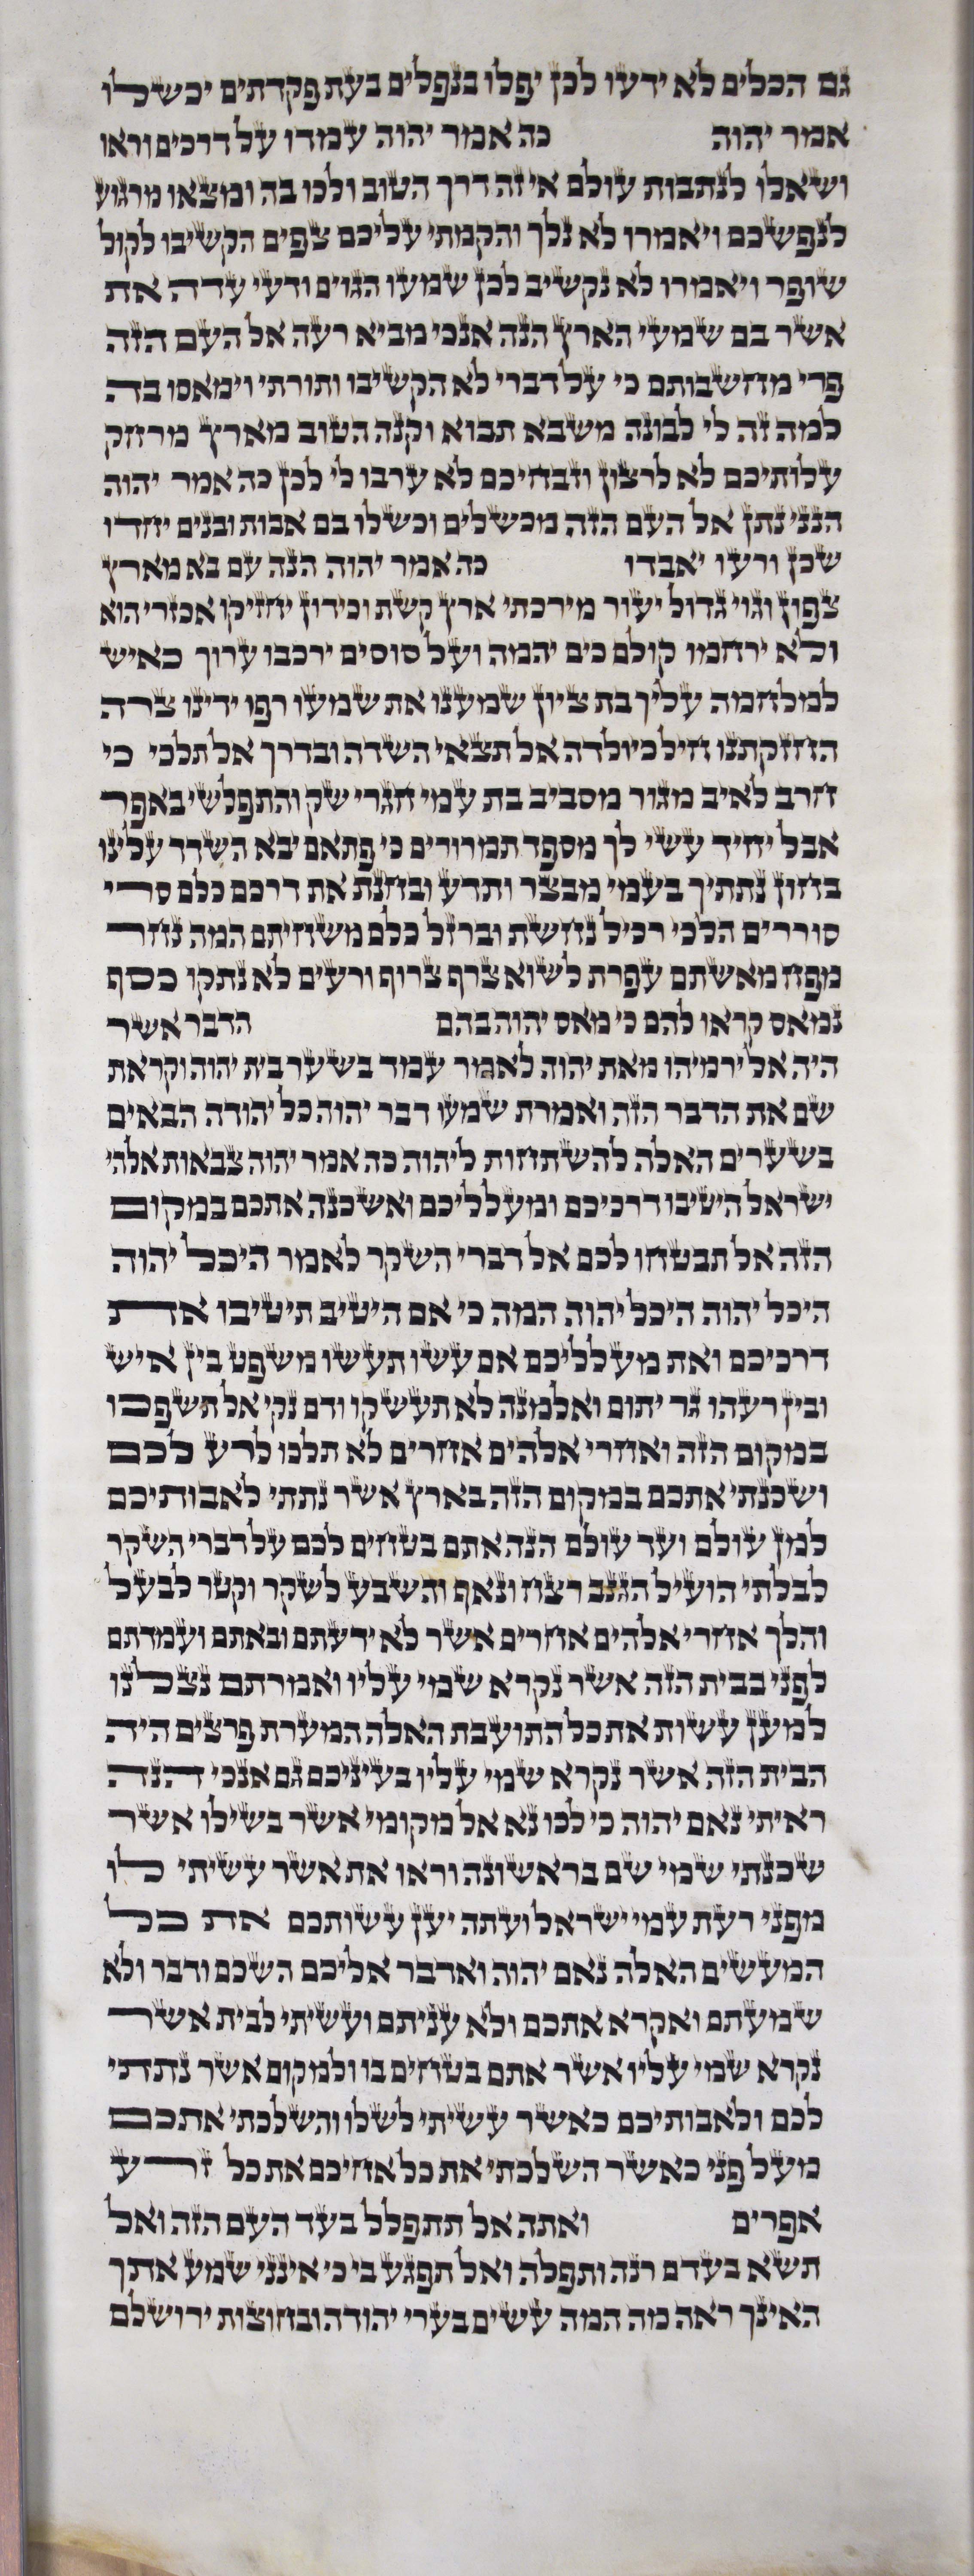 גם הכלים לא ידעו לכן יפלו בנפלים בעת פקדתים יכשלו
אמר יהוה כה אמר יהוה עמדו על דרכים וראו
ושאלו לנתבות עולם אי זה דרך הטוב ולכו בה ומצאו מרגוע
לנפשכם ויאמרו לא נלך והקמתי עליכם צפים הקשיבו לקול
שופר ויאמרו לא נקשיב לכן שמעו הגוים ודעי עדה את
אשר בם שמעי הארץ הנה אנכי מביא רעה אל העם הזה
פרי מחשבותם כי על דברי לא הקשיבו ותורתי וימאסו בה
למה זה לי לבונה משבא תבוא וקנה הטוב מארץ מרחק
עלותיכם לא לרצון וזבחיכם לא ערבו לי לכן כה אמר יהוה
הנני נתן אל העם הזה מכשלים וכשלו בם אבות ובנים יחדו
שכן ורעו יאבדו כה אמר יהוה הנה עם בא מארץ
צפון וגוי גדול יעור מירכתי ארץ קשת וכידון יחזיקו אכזרי הוא
ולא ירחמו קולם כים יהמה ועל סוסים ירכבו ערוך כאיש
למלחמה עליך בת ציון שמענו את שמעו רפו ידינו צרה
החזקתנו חיל כיולדה אל תצאי השדה ובדרך אל תלכי כי
חרב לאיב מגור מסביב בת עמי חגרי שק והתפלשי באפר
אבל יחיד עשי לך מספד תמרורים כי פתאם יבא השדד עלינו
בחון נתתיך בעמי מבצר ותדע ובחנת את דרכם כלם סרי
סוררים הלכי רכיל נחשת וברזל כלם משחיתם המה נחר
מפח מאשתם עפרת לשוא צרף צרוף ורעים לא נתקו כסף
נמאס קראו להם כי מאס יהוה בהם הדבר אשר
היה אל ירמיהו מאת יהוה לאמר עמד בשער בית יהוה וקראת
שם את הדבר הזה ואמרת שמעו דבר יהוה כל יהודה הבאים
בשערים האלה להשתחות ליהוה כה אמר יהוה צבאות אלהי
ישראל היטיבו דרכיכם ומעלליכם ואשכנה אתכם במקום
הזה אל תבטחו לכם אל דברי השקר לאמר היכל יהוה
היכל יהוה היכל יהוה המה כי אם היטיב תיטיבו את
דרכיכם ואת מעלליכם אם עשו תעשו משפט בין איש
ובין רעהו גר יתום ואלמנה לא תעשקו ודם נקי אל תשפכו
במקום הזה ואחרי אלהים אחרים לא תלכו לרע לכם
ושכנתי אתכם במקום הזה בארץ אשר נתתי לאבותיכם
למן עולם ועד עולם הנה אתם בטחים לכם על דברי השקר
לבלתי הועיל הגנב רצח ונאף והשבע לשקר וקטר לבעל
והלך אחרי אלהים אחרים אשר לא ידעתם ובאתם ועמדתם
לפני בבית הזה אשר נקרא שמי עליו ואמרתם נצלנו
למען עשות את כל התועבת האלה המערת פרצים היה
הבית הזה אשר נקרא שמי עליו בעיניכם גם אנכי הנה
ראיתי נאם יהוה כי לכו נא אל מקומי אשר בשילו אשר
שכנתי שמי שם בראשונה וראו את אשר עשיתי לו
מפני רעת עמי ישראל ועתה יען עשותכם את כל
המעשים האלה נאם יהוה ואדבר אליכם השכם ודבר ולא
שמעתם ואקרא אתכם ולא עניתם ועשיתי לבית אשר
נקרא שמי עליו אשר אתם בטחים בו ולמקום אשר נתתי
לכם ולאבותיכם כאשר עשיתי לשלו והשלכתי אתכם
מעל פני כאשר השלכתי את כל אחיכם את כל זרע
אפרים ואתה אל תתפלל בעד העם הזה ואל
תשא בעדם רנה ותפלה ואל תפגע בי כי אינני שמע אתך
האינך ראה מה המה עשים בערי יהודה ובחוצות ירושלם